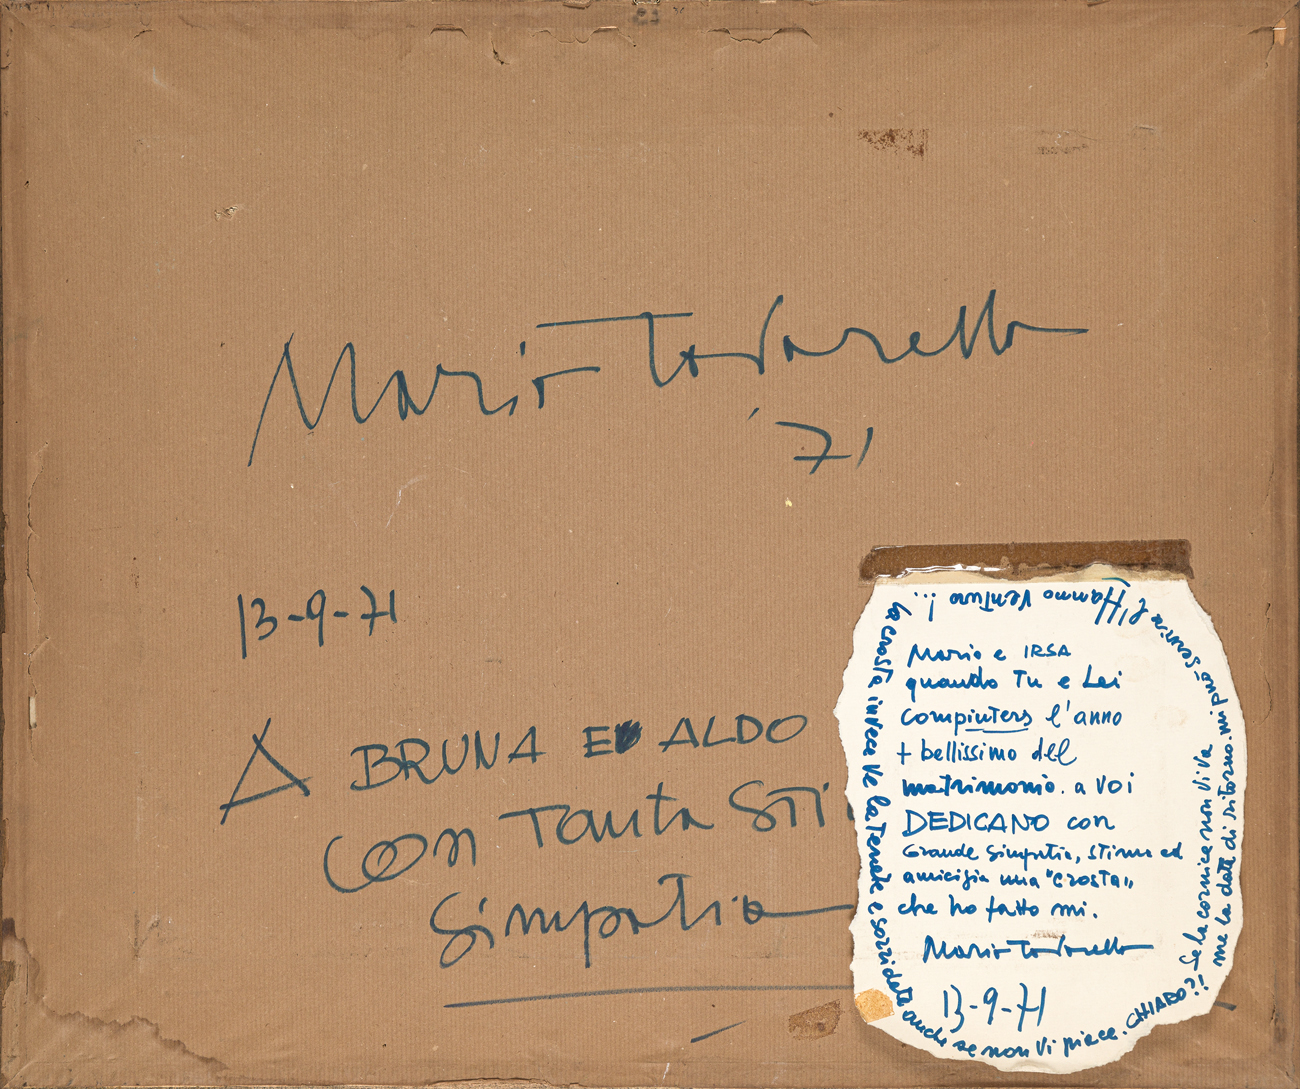 Mario Todarello
'71
13-9-71
A BRUNA E ALDO
con Tanta Sti
Simpatia
Mario e IRSA
quando Tu e Lei
compiuters l'anno
+ bellissimo del
matrimonio. a voi
DEDICANO con
Grande Simpatia, stima ed
amicizia una "crosta"
che ho fatto mi.
Mario Todarello
13-9-71
Se la cornice non vi va
me la date di ritorno. mi può servire
Hanno Ventura !...
la crosta invece ve la Tenete e sorridete anche se non Vi piace. CHIARO?!